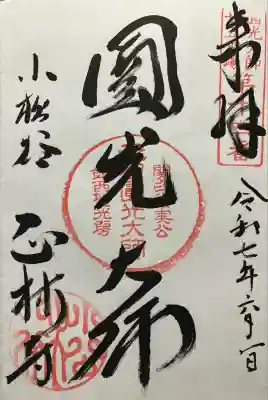 奉拝
令和七年六月一日
圓光大師
圓光大師
小松谷
正林寺